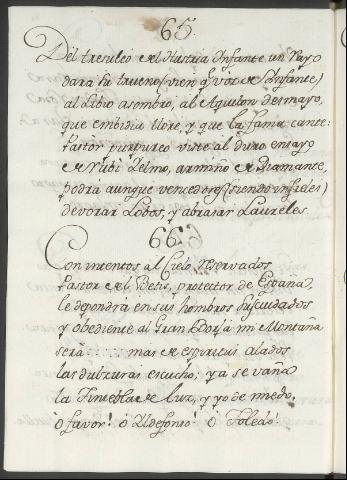 65.
Del tresulco del Austria Infante un Rayo
dará su trueno (vien q̃ vôz de Infante)
al Libio asombro, al Aquilon desmayo,
que embidia llore, y que la fama cante:
Pastor purpureo viste al duro ensayo
de rubi Yelmo, armiño de Diamante,
podrá aunque vencedores (siendo infieles)
devorar Lobos, y abrasar Laureles.
66.
Con intentos al Cielo reservados
Pastor del Betis, protector de España,
le depondrá en sus hombros sus cuidados
y obediente al Gran Borja mi Montaña
será mas de espiritus alados
las dulzuras escucho; ya se vaña
la Tiniebla de luz, y yo de miedo.
ò favor! ò Yldefonso! ò Toledo!